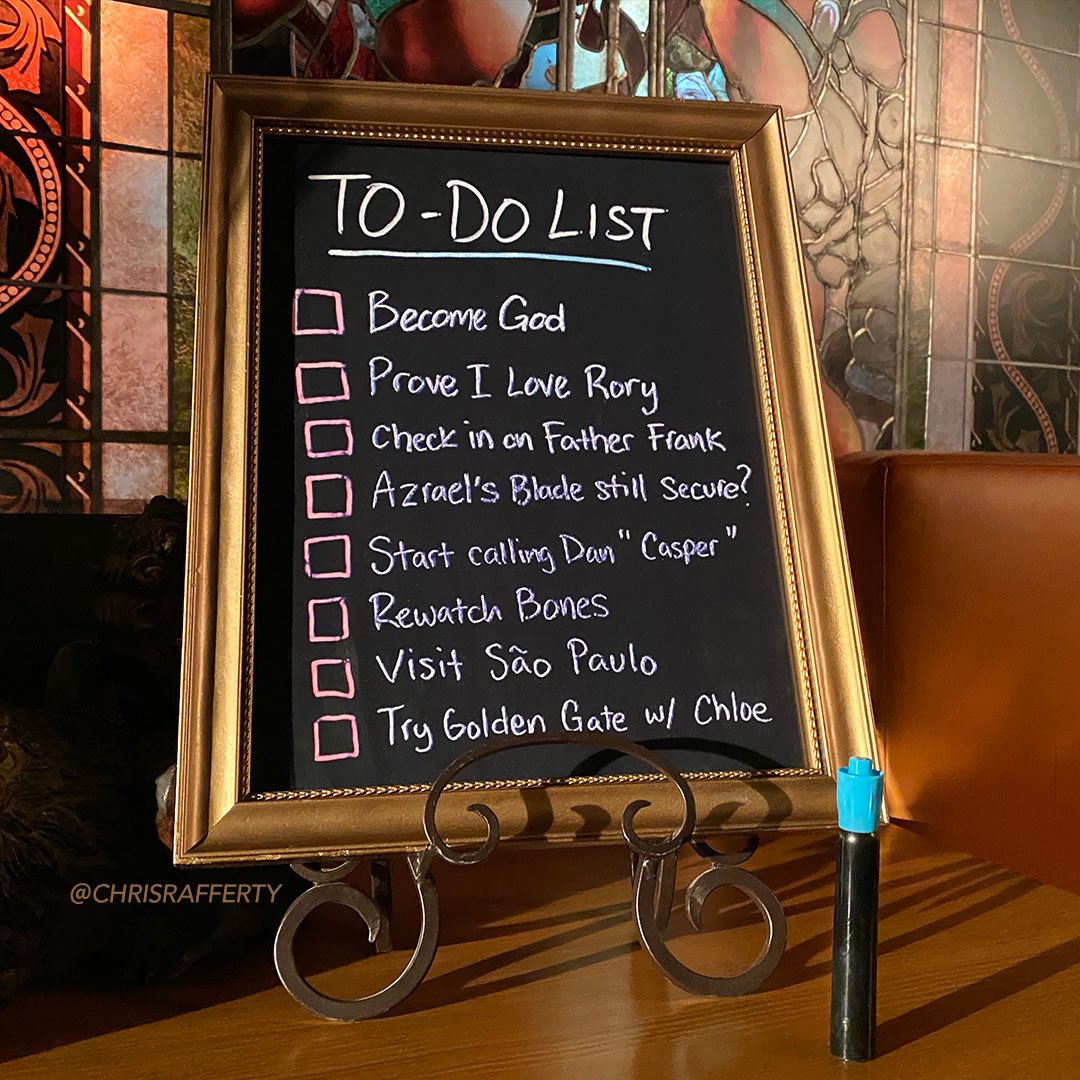 TO-DO LIST
Become God
Prove I Love Rory
Check in on Father Frank
Azrael's Blade still secure?
Start calling Dan "Casper"
Rewatch Bones
Visit São Paulo
Try Golden Gate w/ Chloe
@CHRISRAFFERTY